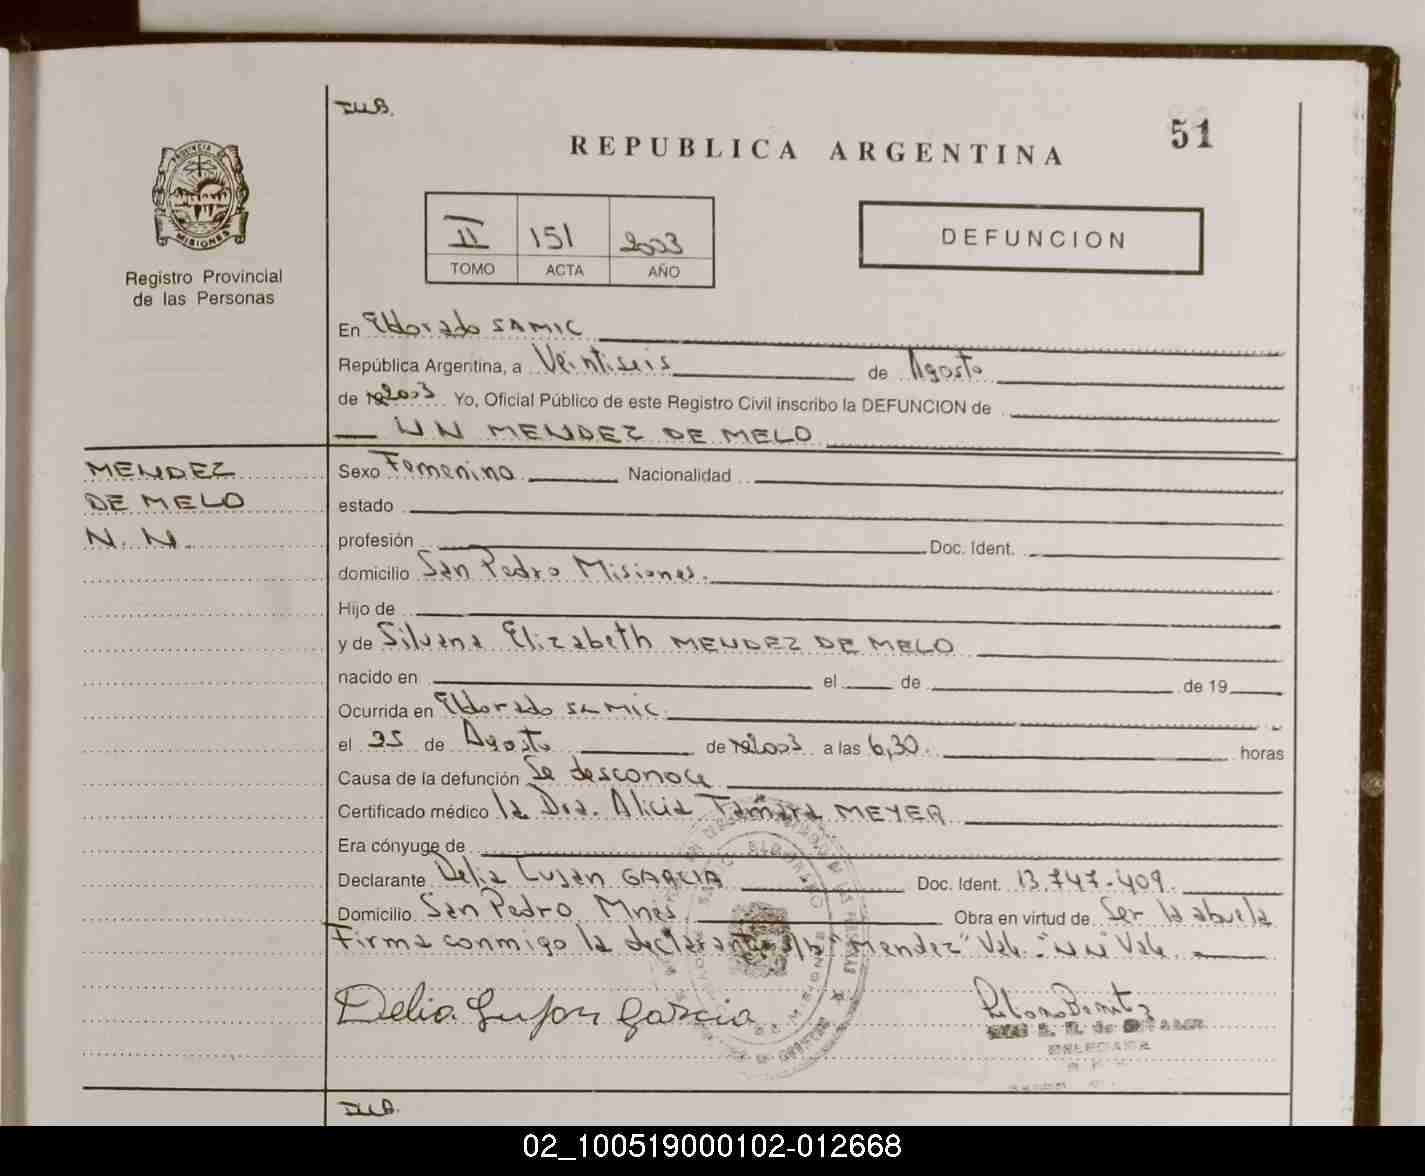 I.U.B.
51
REPUBLICA ARGENTINA
PROVINCIA DE
MISIONES
Registro Provincial
de las Personas
II 151 2003
TOMO ACTA AÑO
DEFUNCION
En Eldorado SAMIC
República Argentina, a Veintiseis de Agosto
de 2003 Yo, Oficial Público de este Registro Civil inscribo la DEFUNCION de
NN MENDEZ DE MELO
MENDEZ
DE MELO
N. N.
Sexo Femenino Nacionalidad
estado
profesión Doc. Ident.
domicilio San Pedro Misiones.
Hijo de
y de Silvana Elizabeth MENDEZ DE MELO
nacido en el de de 19
Ocurrida en Eldorado SAMIC
el 25 de Agosto de 2003 a las 6,30. horas
Causa de la defunción Se desconoce
Certificado médico la Dra. Alicia Tamara MEYER
Era cónyuge de
Declarante Delia Lujan GARCIA Doc. Ident. 13.747.409.
Domicilio San Pedro Mnes. Obra en virtud de Ser la abuela
Firma conmigo la declarante s/b "Mendez" Vale. "NN" Vale
Delia Lujan Garcia
DELEGADA
I.U.B.
02_100519000102-012668